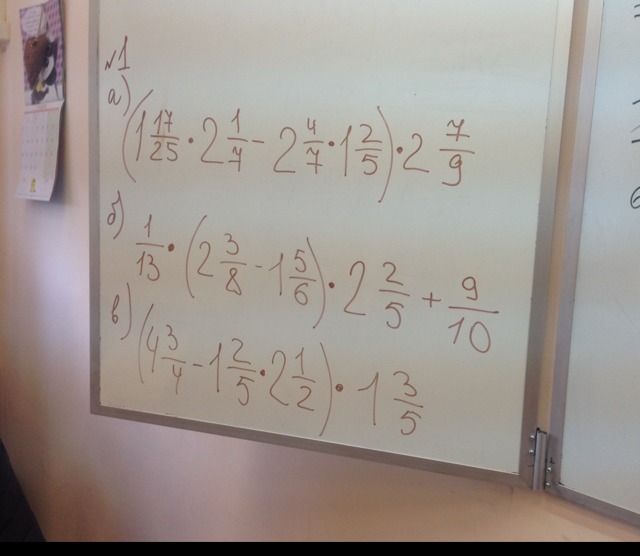 №1
а) (1 17/25 · 2 1/7 - 2 4/7 · 1 2/5) · 2 7/9
б) 1/13 · (2 3/8 - 1 5/6) · 2 2/5 + 9/10
в) (4 3/4 - 1 2/5 · 2 1/2) · 1 3/5